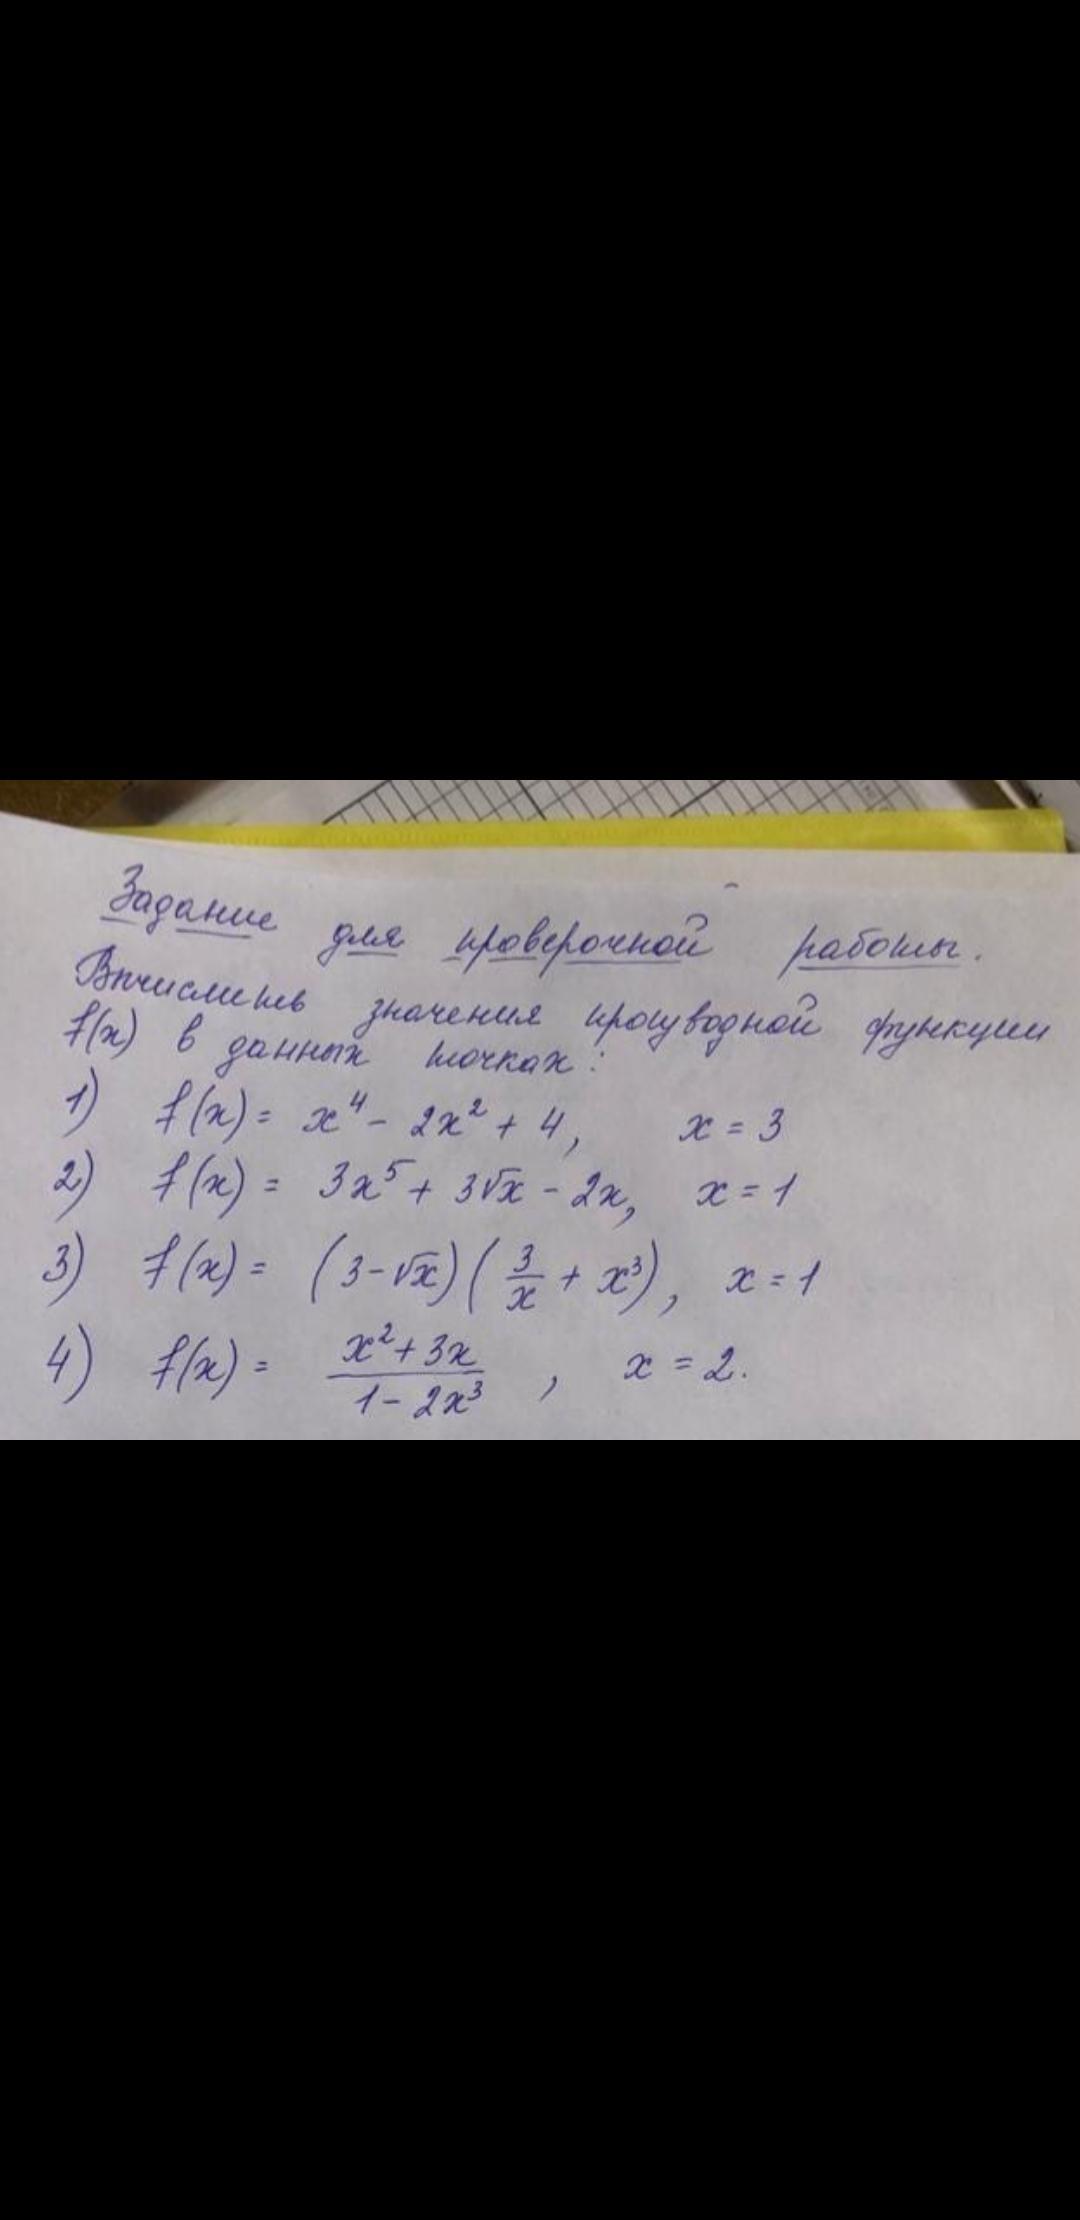 Задание для проверочной работы.
Вычислить значения производной функции
f(x) в данных точках:
1) f(x) = x⁴ - 2x² + 4, x = 3
2) f(x) = 3x⁵ + 3√x - 2x, x = 1
3) f(x) = (3-√x)(3/x + x³), x = 1
4) f(x) = (x² + 3x)/(1 - 2x³), x = 2.